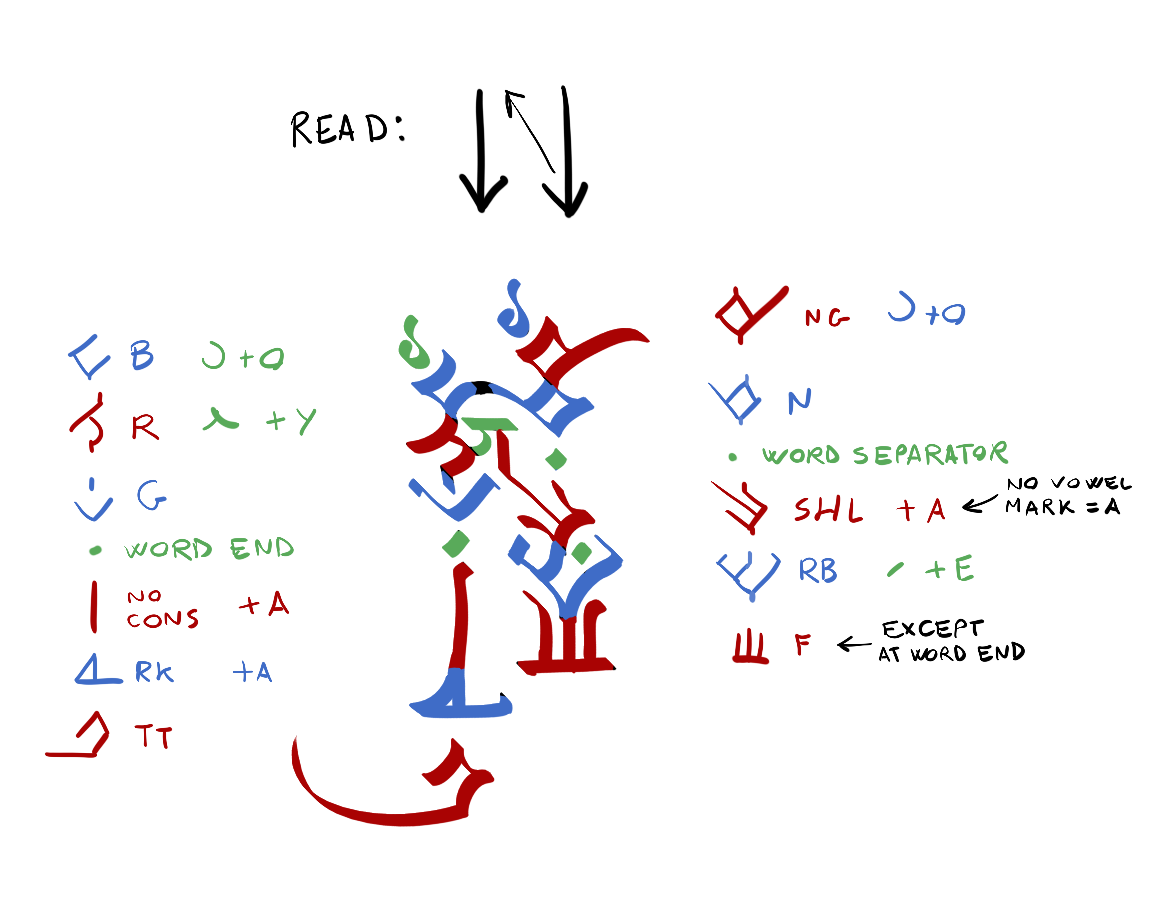 READ:
B +O
R +Y
G
• WORD END
NO CONS +A
RK +A
TT
NG +O
N
• WORD SEPARATOR
SHL +A ← NO VOWEL MARK = A
RB +E
F ← EXCEPT AT WORD END